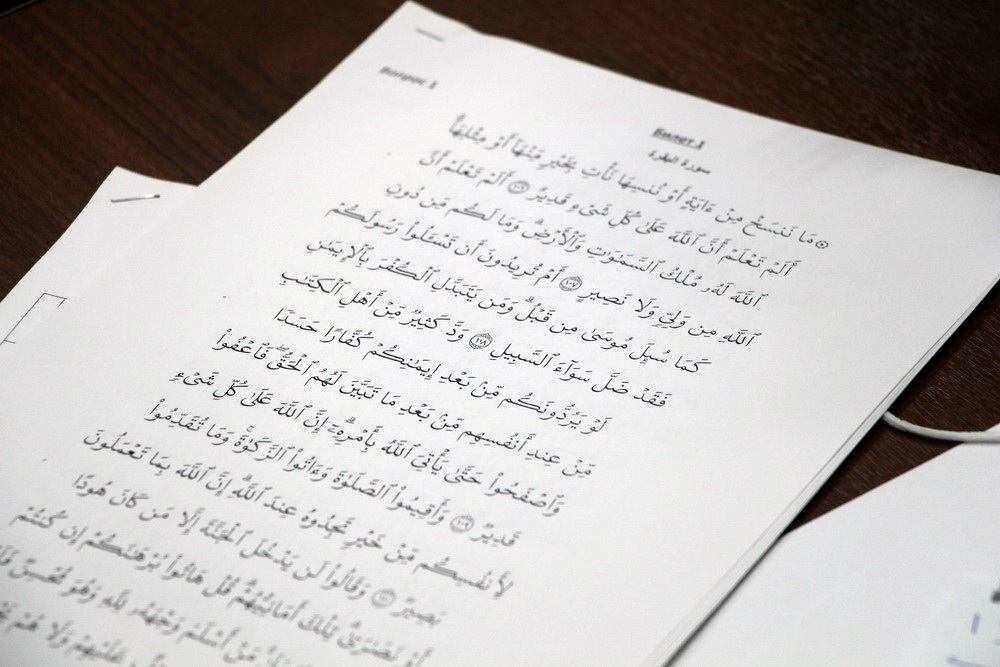 Вопрос 1
Билет 1
سورة البقرة
۞ مَا نَنسَخْ مِنْ ءَايَةٍ أَوْ نُنسِهَا نَأْتِ بِخَيْرٍ مِّنْهَآ أَوْ مِثْلِهَآ
أَلَمْ تَعْلَمْ أَنَّ ٱللَّهَ عَلَىٰ كُلِّ شَىْءٍ قَدِيرٌ ١٠٦ أَلَمْ تَعْلَمْ أَنَّ
ٱللَّهَ لَهُۥ مُلْكُ ٱلسَّمَٰوَٰتِ وَٱلْأَرْضِۗ وَمَا لَكُم مِّن دُونِ
ٱللَّهِ مِن وَلِىٍّ وَلَا نَصِيرٍ ١٠٧ أَمْ تُرِيدُونَ أَن تَسْـَٔلُوا۟ رَسُولَكُمْ
كَمَا سُئِلَ مُوسَىٰ مِن قَبْلُۗ وَمَن يَتَبَدَّلِ ٱلْكُفْرَ بِٱلْإِيمَٰنِ
فَقَدْ ضَلَّ سَوَآءَ ٱلسَّبِيلِ ١٠٨ وَدَّ كَثِيرٌ مِّنْ أَهْلِ ٱلْكِتَٰبِ
لَوْ يَرُدُّونَكُم مِّنۢ بَعْدِ إِيمَٰنِكُمْ كُفَّارًا حَسَدًا
مِّنْ عِندِ أَنفُسِهِم مِّنۢ بَعْدِ مَا تَبَيَّنَ لَهُمُ ٱلْحَقُّۖ فَٱعْفُوا۟
وَٱصْفَحُوا۟ حَتَّىٰ يَأْتِىَ ٱللَّهُ بِأَمْرِهِۦٓۗ إِنَّ ٱللَّهَ عَلَىٰ كُلِّ شَىْءٍ
قَدِيرٌ ١٠٩ وَأَقِيمُوا۟ ٱلصَّلَوٰةَ وَءَاتُوا۟ ٱلزَّكَوٰةَۚ وَمَا تُقَدِّمُوا۟
لِأَنفُسِكُم مِّنْ خَيْرٍ تَجِدُوهُ عِندَ ٱللَّهِۗ إِنَّ ٱللَّهَ بِمَا تَعْمَلُونَ
بَصِيرٌ ١١٠ وَقَالُوا۟ لَن يَدْخُلَ ٱلْجَنَّةَ إِلَّا مَن كَانَ هُودًا
أَوْ نَصَٰرَىٰۗ تِلْكَ أَمَانِيُّهُمْۗ قُلْ هَاتُوا۟ بُرْهَٰنَكُمْ إِن كُنتُمْ
مَنْ أَسْلَمَ وَجْهَهُۥ لِلَّهِ وَهُوَ مُحْسِنٌ
عَلَيْهِمْ وَلَا هُمْ